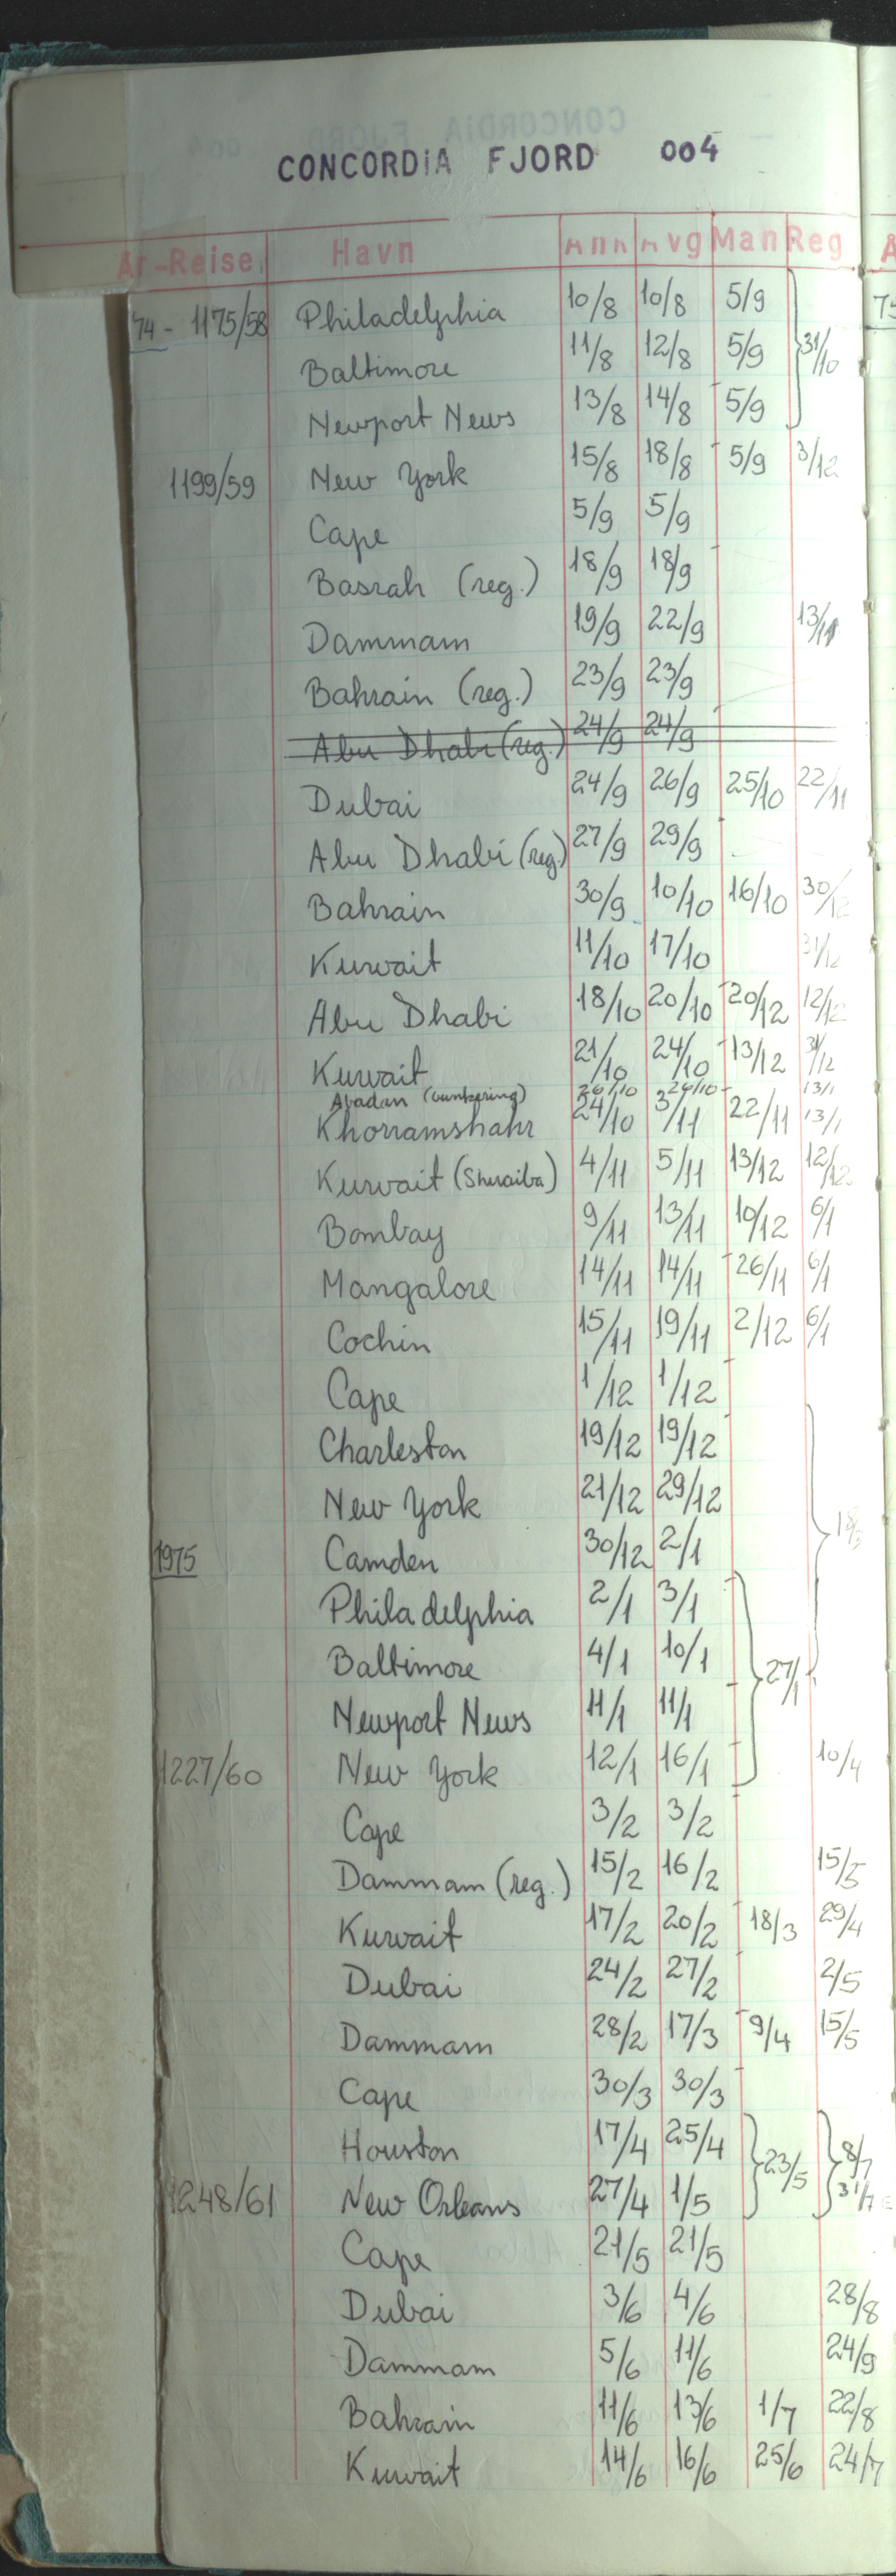 CONCORDIA FJORD 004
År-Reise Havn Ank Avg Man Reg
74 - 1175/58 Philadelphia 10/8 10/8 5/9
Baltimore 11/8 12/8 5/9 31/10
Newport News 13/8 14/8 5/9
1199/59 New York 15/8 18/8 5/9 3/12
Cape 5/9 5/9
Basrah (reg.) 18/9 18/9
Dammam 19/9 22/9 13/11
Bahrain (reg.) 23/9 23/9
Abu Dhabi (reg.) 24/9 24/9
Dubai 24/9 26/9 25/10 22/11
Abu Dhabi (reg.) 27/9 29/9
Bahrain 30/9 10/10 16/10 30/12
Kuwait 11/10 17/10 31/12
Abu Dhabi 18/10 20/10 20/12 12/12
Kuwait 21/10 24/10 13/12 31/12
Abadan (bunkering) 26/10 26/10 13/1
Khorramshahr 24/10 3/11 22/11 13/1
Kuwait (Shuaiba) 4/11 5/11 13/12 12/12
Bombay 9/11 13/11 10/12 6/1
Mangalore 14/11 14/11 26/11 6/1
Cochin 15/11 19/11 2/12 6/1
Cape 1/12 1/12
Charleston 19/12 19/12
New York 21/12 29/12
1975 Camden 30/12 2/1
Philadelphia 2/1 3/1
Baltimore 4/1 10/1 27/1
Newport News 11/1 11/1
1227/60 New York 12/1 16/1 10/4
Cape 3/2 3/2
Dammam (reg.) 15/2 16/2 15/5
Kuwait 17/2 20/2 18/3 29/4
Dubai 24/2 27/2 2/5
Dammam 28/2 17/3 9/4 15/5
Cape 30/3 30/3
Houston 17/4 25/4 23/5 8/7
1248/61 New Orleans 27/4 1/5 31/7
Cape 21/5 21/5
Dubai 3/6 4/6 28/8
Dammam 5/6 11/6 24/9
Bahrain 11/6 13/6 1/7 22/8
Kuwait 14/6 16/6 25/6 24/7